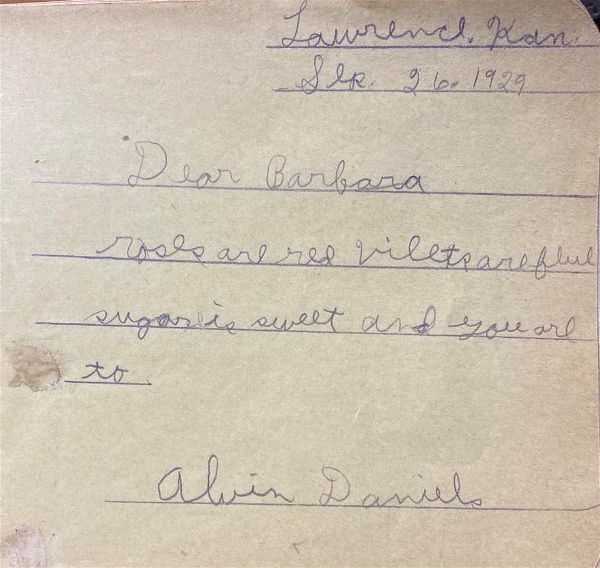 Lawrence, Kan.
Sep. 26. 1929
Dear Barbara
roses are red vilets are blue
sugar is sweet and you are
to.
Alvin Daniels